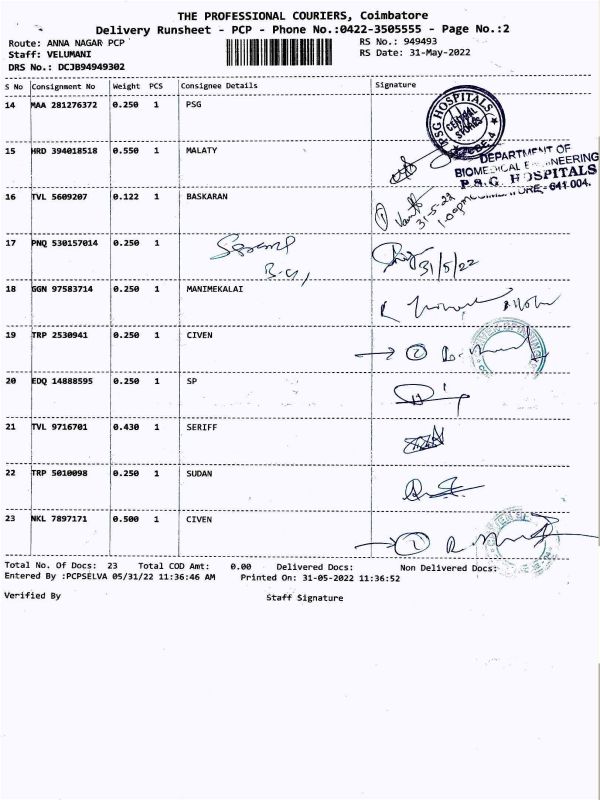 THE PROFESSIONAL COURIERS, Coimbatore
Delivery Runsheet - PCP - Phone No.:0422-3505555 - Page No.:2
Route: ANNA NAGAR PCP
Staff: VELUMANI
DRS No.: DCJB94949302
RS No.: 949493
RS Date: 31-May-2022
S No Consignment No Weight PCS Consignee Details Signature
14 MAA 281276372 0.250 1 PSG
PSG HOSPITALS
CENTRAL STORES
CBE-4
15 HRD 394018518 0.550 1 MALATY
DEPARTMENT OF
BIOMEDICAL ENGINEERING
P.S.G. HOSPITALS
COIMBATORE - 641 004.
16 TVL 5609207 0.122 1 BASKARAN
31-5-22
1.00pm
17 PNQ 530157014 0.250 1
31/5/22
18 GGN 97583714 0.250 1 MANIMEKALAI
19 TRP 2530941 0.250 1 CIVEN
20 EDQ 14888595 0.250 1 SP
21 TVL 9716701 0.430 1 SERIFF
22 TRP 5010098 0.250 1 SUDAN
23 NKL 7897171 0.500 1 CIVEN
Total No. Of Docs: 23 Total COD Amt: 0.00 Delivered Docs: Non Delivered Docs:
Entered By :PCPSELVA 05/31/22 11:36:46 AM Printed On: 31-05-2022 11:36:52
Verified By Staff Signature